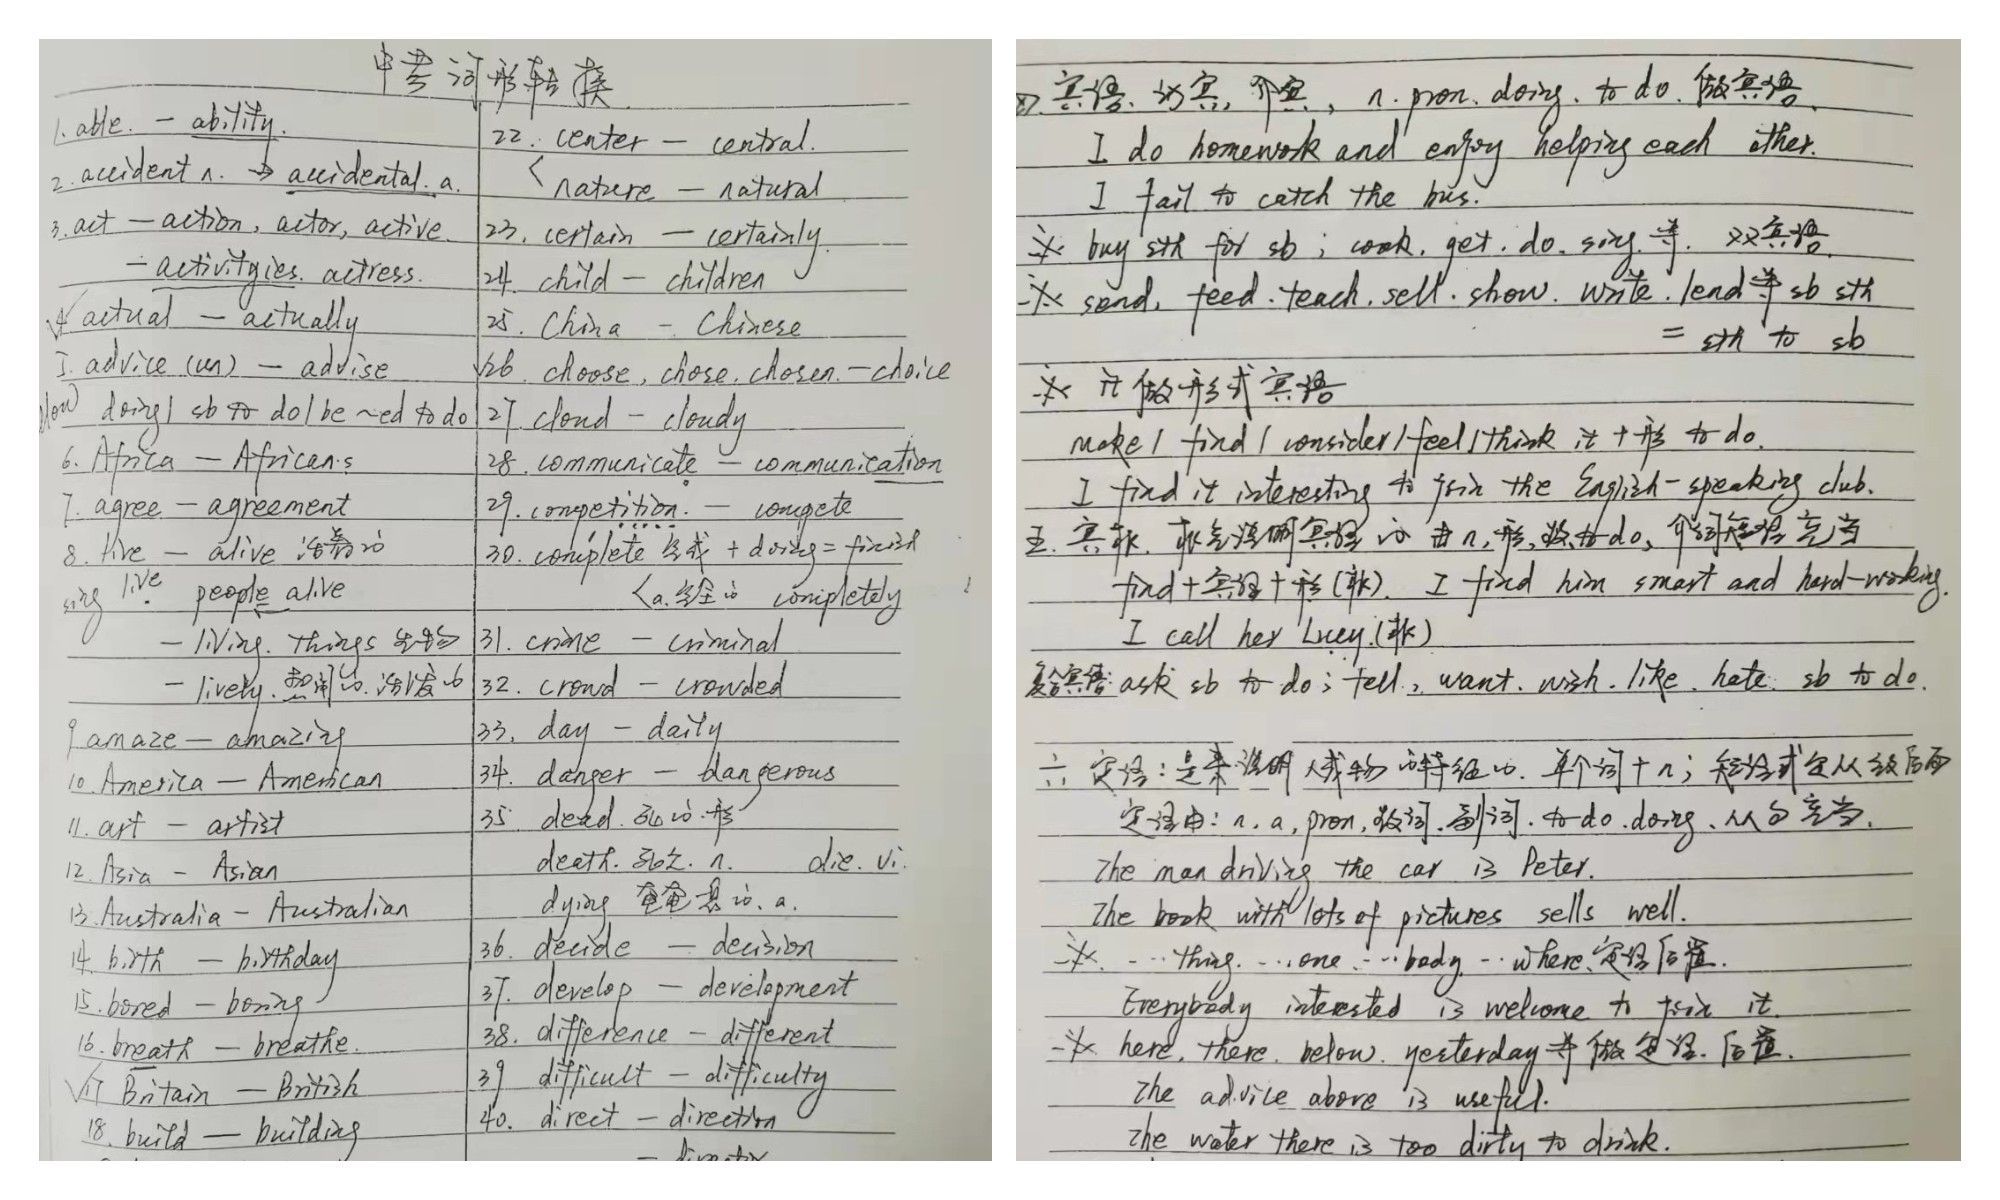 中考词形转换
1. able. — ability.
2. accident n. → accidental. a.
3. act — action, actor, active.
— activityies. actress.
4 actual — actually
5. advice (un) — advise
doing / sb to do / be ~ed to do
6. Africa — African.s
7. agree — agreement
8. live — alive 活着的
live people alive
— living. things 生物
— lively. 热闹的. 活泼的
9 amaze — amazing
10. America — American
11. art — artist
12. Asia — Asian
13. Australia — Australian
14. birth — birthday
15. bored — boring
16. breath — breathe.
17 Britain — British
18. build — building
22. center — central.
nature — natural
23. certain — certainly.
24. child — children
25. China — Chinese
26. choose, chose, chosen. — choice
27. cloud — cloudy
28. communicate — communication
29. competition. — compete
30. complete 完成 + doing = finish
a. 完全的 completely
31. crime — criminal
32. crowd — crowded
33. day — daily
34. danger — dangerous
35. dead. 死的. 形
death. 死亡. n. die. vi.
dying 奄奄一息的. a.
36. decide — decision
37. develop — development
38. difference — different
39 difficult — difficulty
40. direct — direction
四. 宾语. 动宾, 介宾, n. pron. doing. to do. 做宾语.
I do homework and enjoy helping each other.
I fail to catch the bus.
※ buy sth for sb; cook. get. do. sing. 等. 双宾语.
※ send. feed. teach. sell. show. write. lend 等 sb sth
= sth to sb
※ it 做形式宾语
make / find / consider / feel / think it + 形 to do.
I find it interesting to join the English-speaking club.
五. 宾补. 补充说明宾语的 由 n, 形, to do, 介词短语充当
find + 宾语 + 形 (补). I find him smart and hard-working.
I call her Lucy. (补)
复合宾语: ask sb to do; tell, want. wish. like. hate. sb to do.
六 定语: 是来说明人或物的特征的. 单个词 + n; 短语或定从放后面
定语由: n. a, pron, 数词. 副词. to do. doing. 从句充当.
The man driving the car is Peter.
The book with lots of pictures sells well.
※ …thing. …one. …body. …where. 定语后置.
Everybody interested is welcome to join it.
※ here. there. below. yesterday 等做定语. 后置.
The advice above is useful.
The water there is too dirty to drink.